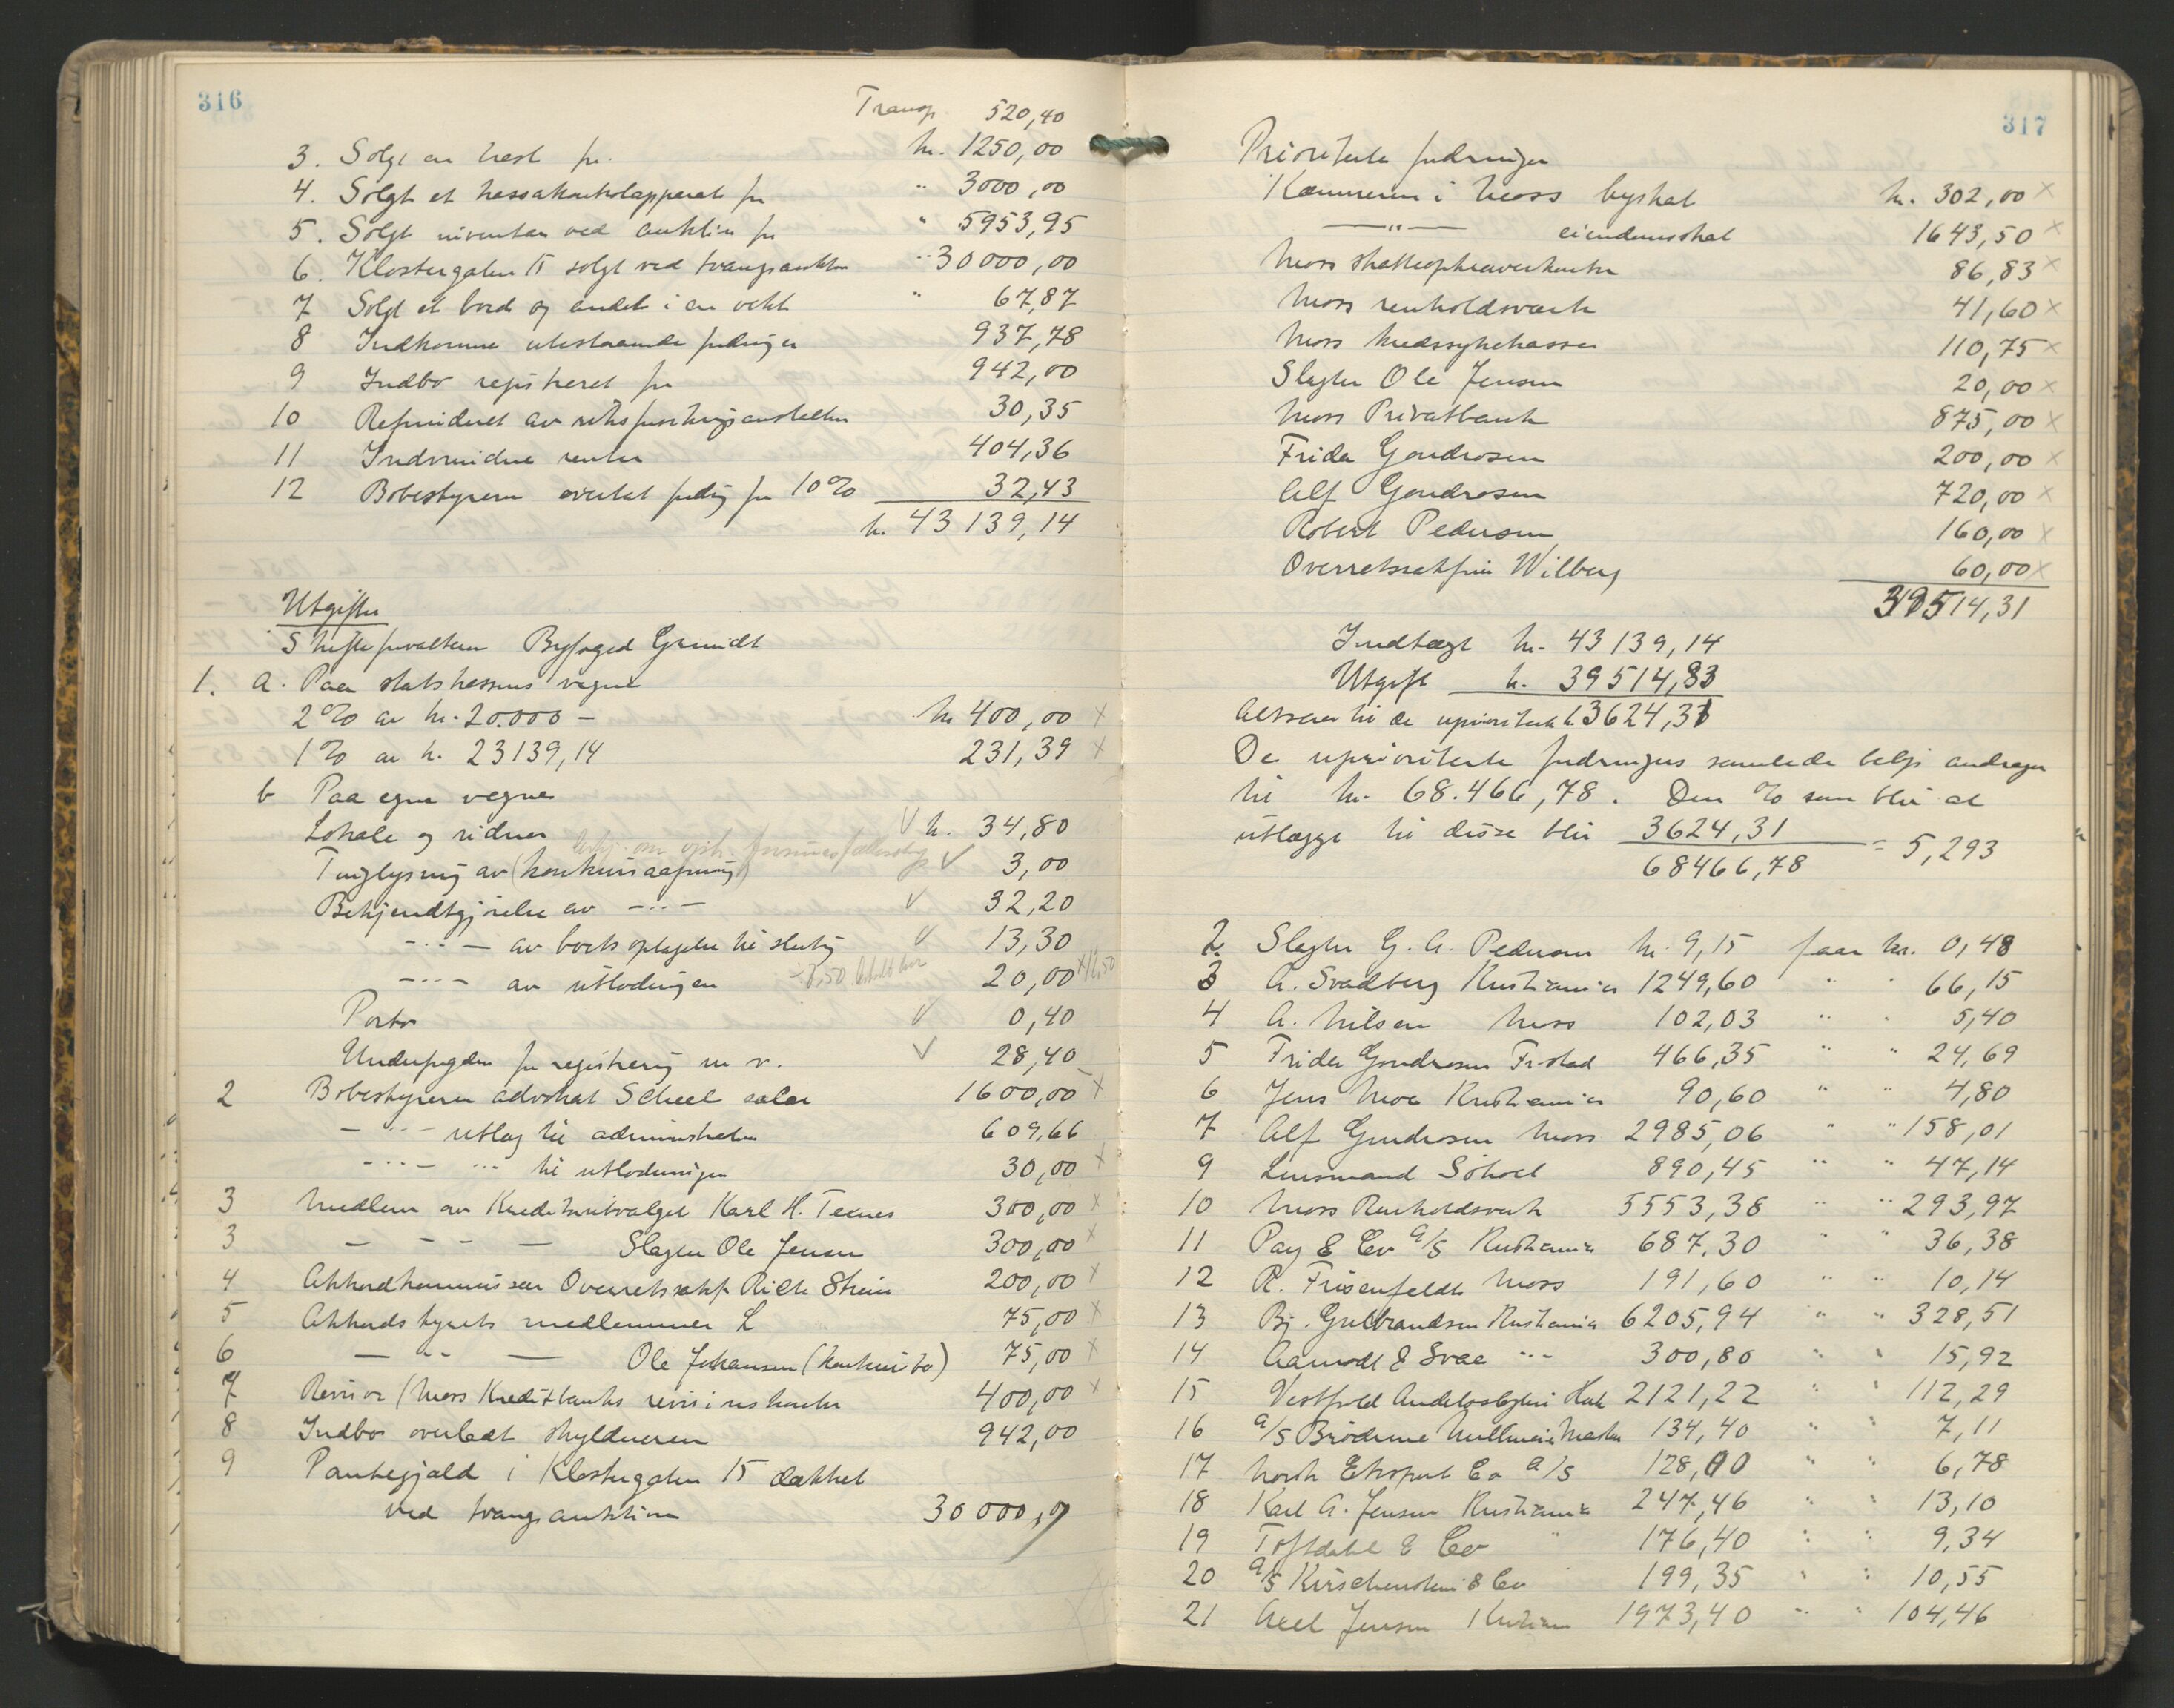 316
Transp. 520,40
3. Solgt en hest for kr. 1250,00
4. Solgt et kassakontrolapparat for " 3000,00
5. Solgt inventar ved auktion for " 5953,95
6. Klostergaten 15 solgt ved tvangsauktion " 30000,00
7 Solgt et bord og andet i en vekt " 67,87
8 Indkomne utestaaende fordringer 937,78
9 Indbo registreret for 942,00
10 Refunderet av riksforsikringsanstalten 30,35
11 Indvundne renter 404,36
12 Bobestyreren overtat fordring for 10% 32,43
kr. 43139,14
Utgifter
Skifteforvalteren Byfoged Grundt
1. a. Paa statskassens vegne
2% av kr. 20.000 - kr 400,00 x
1% av kr. 23139,14 231,39 x
b Paa egne vegne
Lokale og vidner V kr. 34,80
Tinglysning av (konkursaapning) V 3,00
Bekjendtgjørelse av -"- V 32,20
-"- av boets optagelse til slutning V 13,30
-"- av utlodningen 20,00
Porto V 0,40
Underfogden for registrering m v. V 28,40
2 Bobestyreren advokat Scheel salær 1600,00 x
-"- utlæg til administration 609,66
-"- " til utlodningen 30,00 x
3 Medlem av Kreditorutvalget Karl H. Teknes 300,00 x
3 - - - - Slagter Ole Jensen 300,00 x
4 Akkordkommissær Overretssakf. Rich Strøm 200,00 x
5 Akkordstyrets medlemmer L 75,00 x
6 - " - Ole Johansen (konkursbo) 75,00 x
7 Revisor (Moss Kreditbanks revisionskontor 400,00 x
8 Indbo overladt skyldneren 942,00
9 Pantegjæld i Klostergaten 15 dækket
ved tvangsauktion 30000,
317
Prioriterte fordringer
Kæmneren i Moss byskat kr. 302,00 x
-"- eiendomsskat 1643,50 x
Moss skatteopkræverkontor 86,83 x
Moss renholdsverk 41,60 x
Moss kredssykekasse 110,75 x
Slagter Ole Jensen 20,00 x
Moss Privatbank 875,00 x
Frida Gondrosen 200,00 x
Alf Gondrosen 720,00 x
Robert Pedersen 160,00 x
Overretssakfører Wilberg 60,00 x
39514,31
Indtægt kr. 43139,14
Utgift kr. 39514,83
Altsaa til de uprioriterte kr. 3624,31
De uprioriterte fordringers samlede beløp andrager
til kr. 68.466,78. Den % som blir at
utlægge til disse blir 3624,31 / 68466,78 = 5,293
2. Slagter G. A. Pedersen kr. 9,15 faar kr. 0,48
3 A. Svadberg Kristiania 1249,60 " " 66,15
4 A. Nilsen Moss 102,03 " " 5,40
5 Frida Gondrosen Fr.stad 466,35 " " 24,69
6 Jens Moe Kristiania 90,60 " " 4,80
7 Alf Gondrosen Moss 2985,06 " " 158,01
9 Lensmand Sohoel 890,45 " " 47,14
10 Moss Renholdsverk 5553,38 " " 293,97
11 Pay & Co A/S Kristiania 687,30 " " 36,38
12 R. Frisenfeldt Moss 191,60 " " 10,14
13 Bj. Gulbrandsen Kristiania 6205,94 " " 328,51
14 Aamodt & Svae -"- 300,80 " " 15,92
15 Vestfold Andelsslagteri 2121,22 " " 112,29
16 A/S Brødrene 134,40 " " 7,11
17 Norsk Export Co A/S 128,00 " " 6,78
18 Karl A. Jensen Kristiania 247,46 " " 13,10
19 Toftdahl & Co " 176,40 " " 9,34
20 A/S Kirschenstein & Co 199,35 " " 10,55
21 Axel Jensen Kristiania 1973,40 " " 104,46